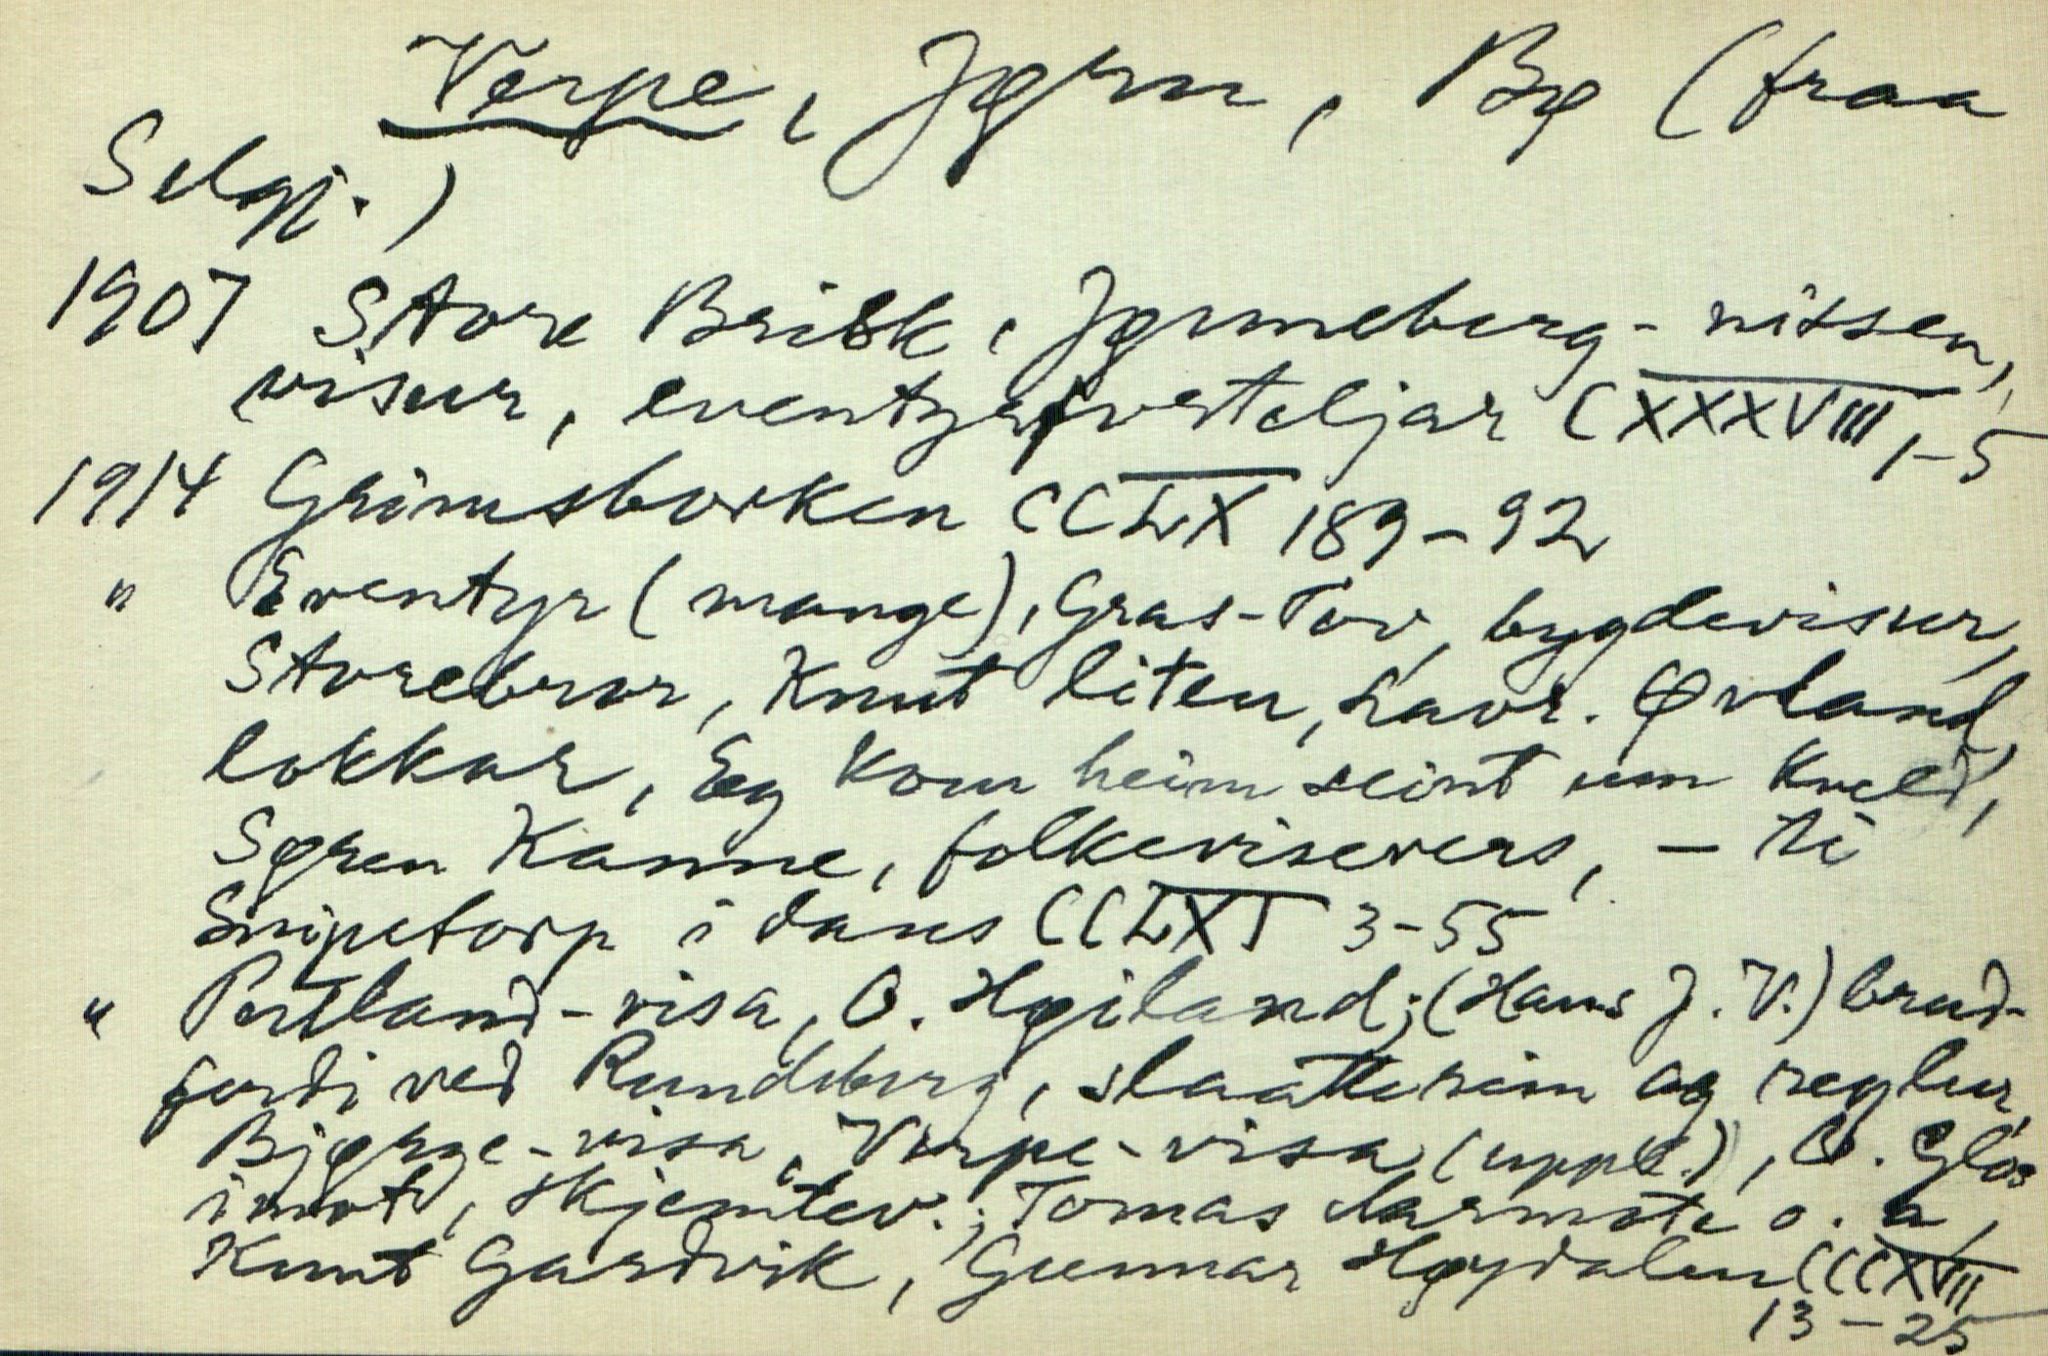 Verpe, Jørn, Bø (fraa
Selgj.)
1907 Store Brisk, Jønneberg-nissen,
visur, eventyrforteljar CXXXVIII, 1-5
1914 Grimsborken CCLX 189-92
" Eventyr (mange), Gras-Tov, bygdevisur,
Storebror, Knut liten, Lavr. Øvland,
lokkar, Eg kom heim seint um kveld,
Søren Kanne, folkevisevers, - ti
Snipetorp i dans CCLXI 3-55
" Portland-visa, O. Høiland; (Hans J. V.) brud-
ferdi ved Rundeberg, slaatterim og reglur,
Bjørge-visa, Verpe-visa (uppl.), O. Glos
imot, skjemtev.; Tomas o. a,
Knut Gardvik, Gunnar Høydalen CCCXVIII
13-25